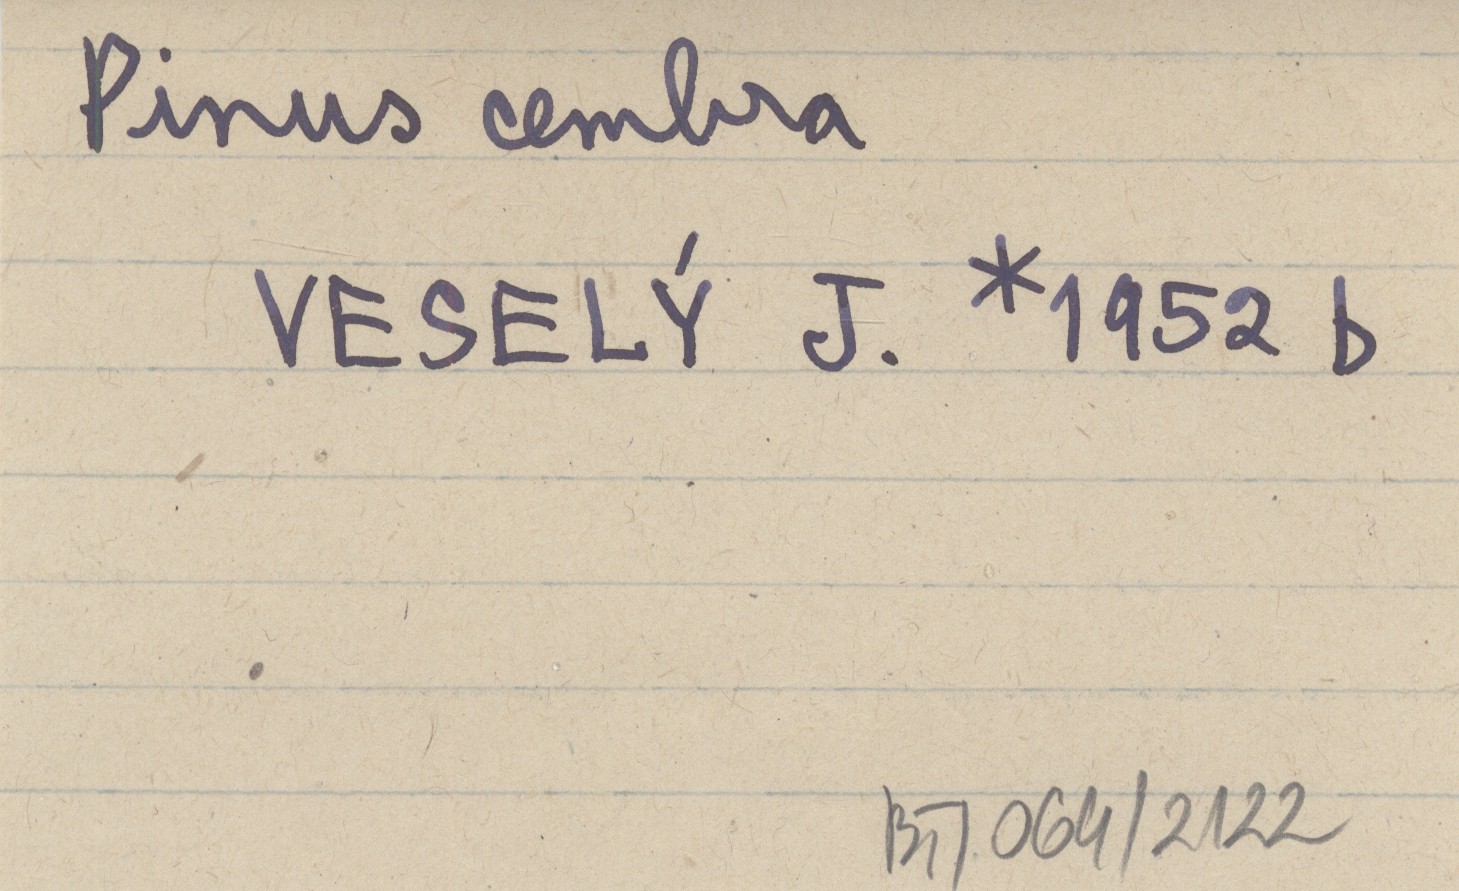 Pinus cembra
VESELÝ J. *1952 b
064/2122